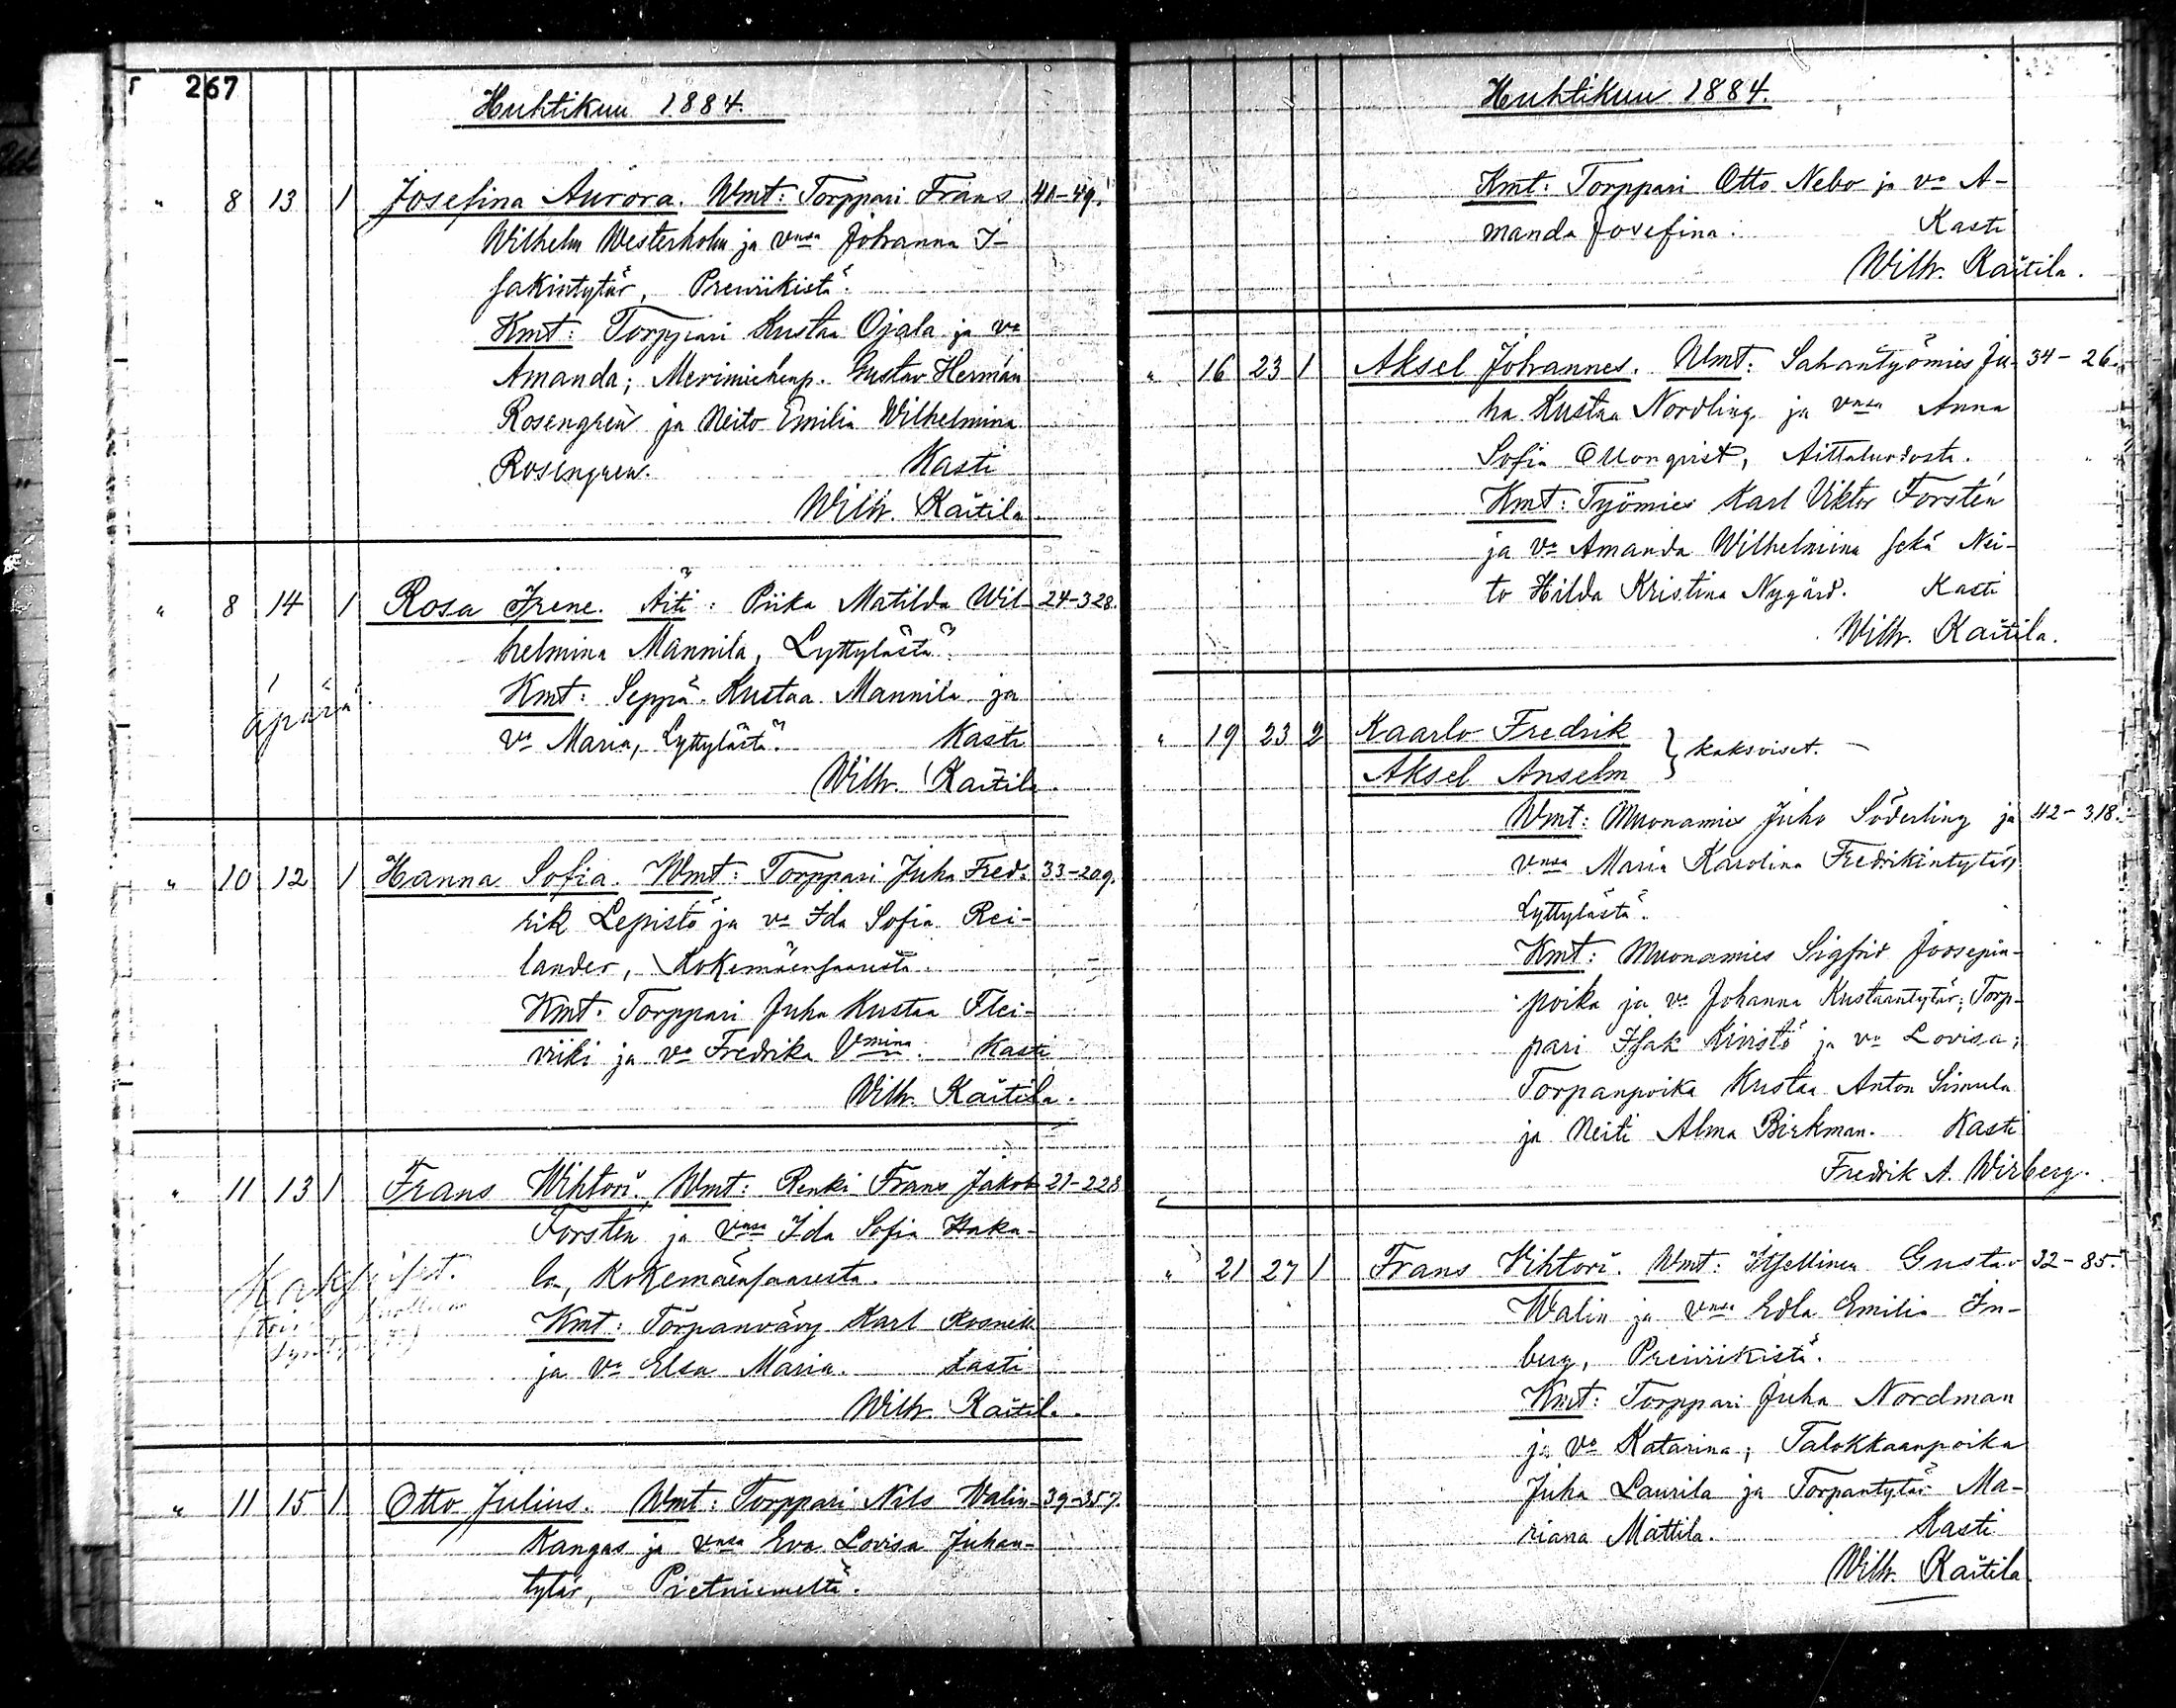 267
Huhtikuu 1884.
" 8 13 1 Josefina Aurora. Wmt: Torppari Frans 41-49.
Wilhelm Westerholm ja vnsa Johanna I-
sakintytär, Preiviikistä.
Kmt: Torppari Kustaa Ojala ja va
Amanda; Merimiehenp. Gustav Herman
Rosengren ja Neito Emilia Wilhelmina
Rosengren. Kasti
Wilh. Kaitila
" 8 14 1 Rosa Irene. Äiti: Piika Matilda Wil- 24-328.
helmina Mannila, Lyttylästä.
Kmt: Seppä Kustaa Mannila ja
äpärä.
va Maria, Lyttylästä. Kasti
Wilh. Kaitila.
" 10 12 1 Hanna Sofia. Wmt: Torppari Juha Fred- 33-209.
rik Lepistö ja va Ida Sofia Rei-
lander, Kokemäensaaresta.
Kmt: Torppari Juha Kustaa Flei-
viiki ja va Fredrika Vmina. Kasti
Wilh. Kaitila.
" 11 13 1 Frans Wihtori. Wmt: Renki Frans Jakob 21-228
Forsten ja vnsa Ida Sofia Haka-
Kaksoiset.
la, Kokemäensaaresta.
Kmt: Torpanvävy Karl Rosnell
ja va Elsa Maria. Kasti
Wilh. Kaitila.
" 11 15 1 Otto Julius. Wmt: Torppari Nils Walin- 39-357.
kangas ja vnsa Eva Lovisa Juhan-
tytär, Pietniemeltä.
Huhtikuu 1884.
Kmt: Torppari Otto Nebo ja va A-
manda Josefina. Kasti
Wilh. Kaitila.
" 16 23 1 Aksel Johannes. Wmt: Sahantyömies Ju- 34-26.
ha Kustaa Nordling ja vnsa Anna
Sofia Ollonqvist, Aittaluodosta.
Kmt: Työmies Karl Viktor Forstén
ja va Amanda Wilhelmina sekä Nei-
to Hilda Kristina Nygård. Kasti
Wilh. Kaitila.
" 19 23 2 Kaarlo Fredrik
Aksel Anselm } kaksoiset.
Wmt: Muonamies Juho Söderling ja 42-318.
vnsa Maria Karolina Fredrikintytär,
Lyttylästä.
Kmt: Muonamies Sigfrid Joosepin-
poika ja va Johanna Kustaantytär; Torp-
pari Isak Kivistö ja va Lovisa;
Torpanpoika Kustaa Anton Simula
ja Neiti Alma Birkman. Kasti
Fredrik A. Wirberg.
" 21 27 1 Frans Vihtori. Wmt: Itsellinen Gustav 32-85.
Walin ja vnsa Edla Emilia In-
berg, Preiviikistä.
Kmt: Torppari Juha Nordman
ja va Katarina; Talokkaanpoika
Juha Laurila ja Torpantytär Ma-
riana Mattila. Kasti
Wilh. Kaitila